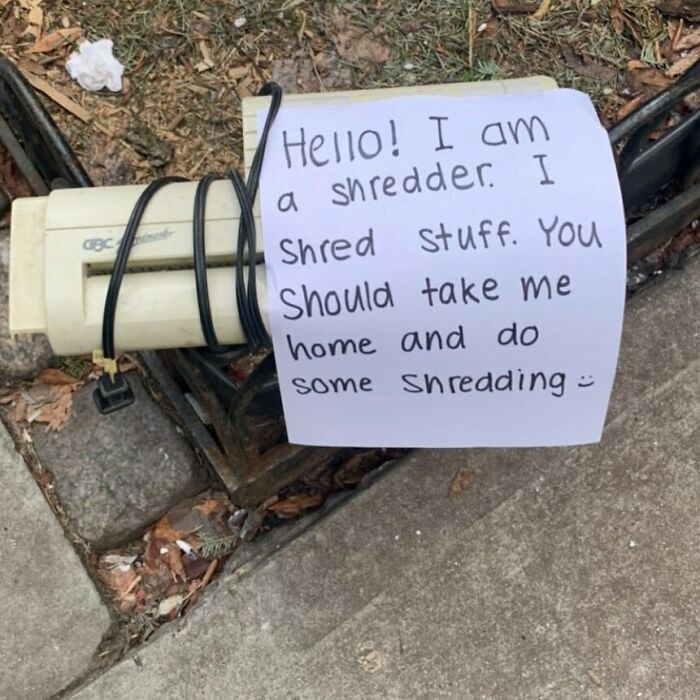 Hello! I am
a shredder. I
Shred stuff. You
Should take me
home and do
some shredding :)
GBC